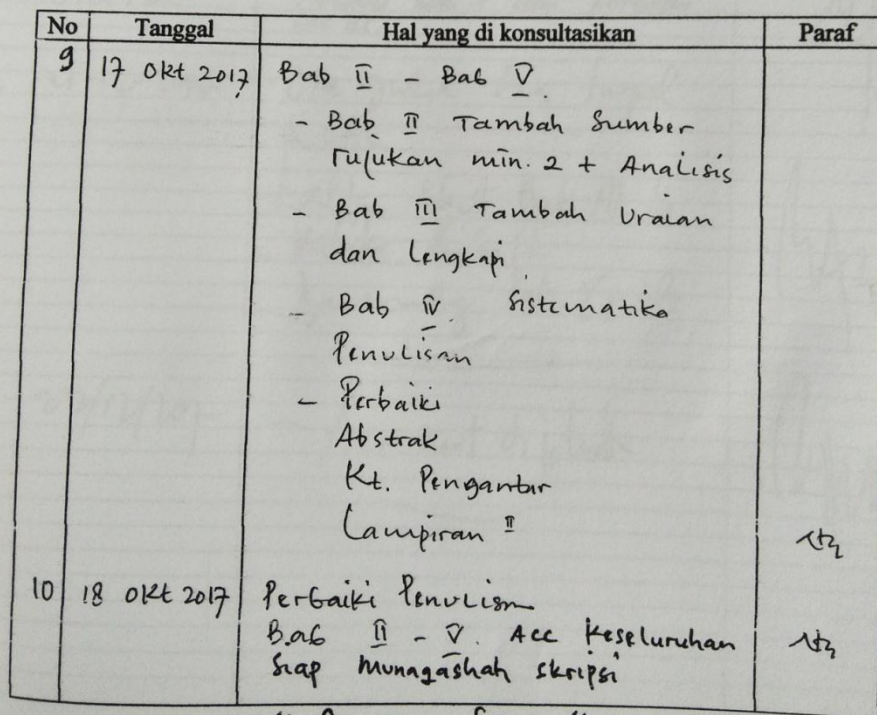 No Tanggal Hal yang di konsultasikan Paraf
9 17 Okt 2017 Bab II - Bab V
- Bab II Tambah Sumber
Rujukan min. 2 + Analisis
- Bab III Tambah Uraian
dan Lengkapi
- Bab IV. Sistematika
Penulisan
- Perbaiki
Abstrak
Kt. Pengantar
Lampiran II
10 18 Okt 2017 Perbaiki Penulisan
Bab II - V. Acc Keseluruhan
Siap Munaqashah Skripsi